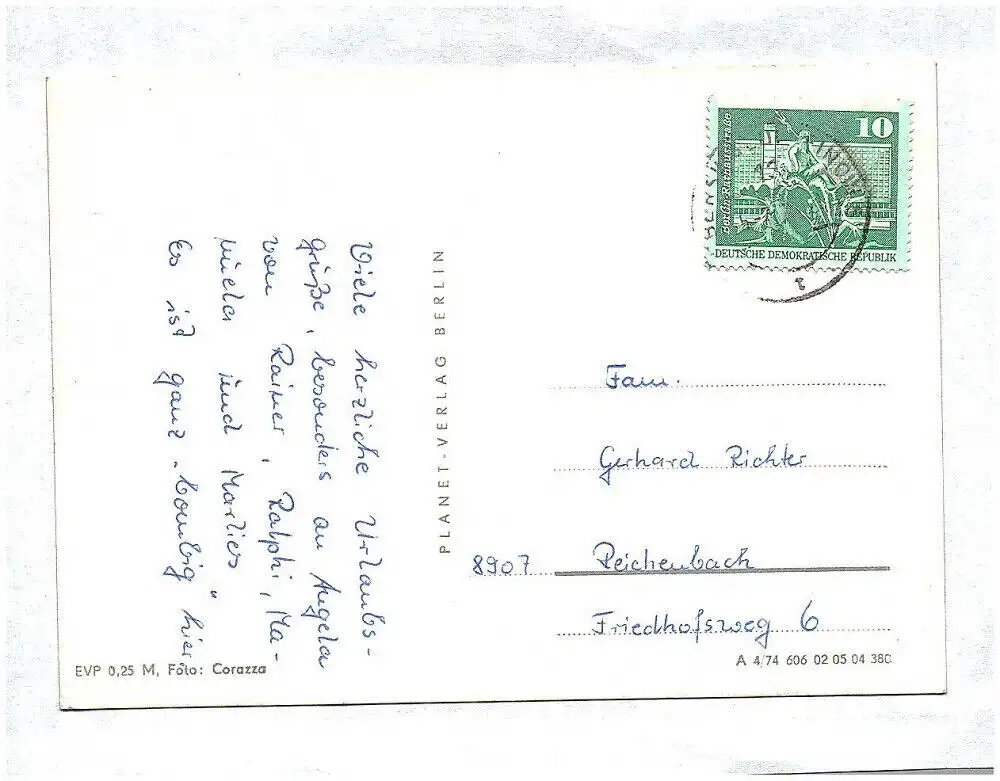 Viele herzliche Urlaubs-
grüße, besonders an Angela
von Rainer, Ralphi, Ma-
nuela und Marlies
Es ist ganz „bombig" hier
PLANET-VERLAG BERLIN
10
DEUTSCHE DEMOKRATISCHE REPUBLIK
Fam.
Gerhard Richter
8907 Reichenbach
Friedhofsweg 6
EVP 0,25 M, Foto: Corazza
A 4/74 606 02 05 04 380